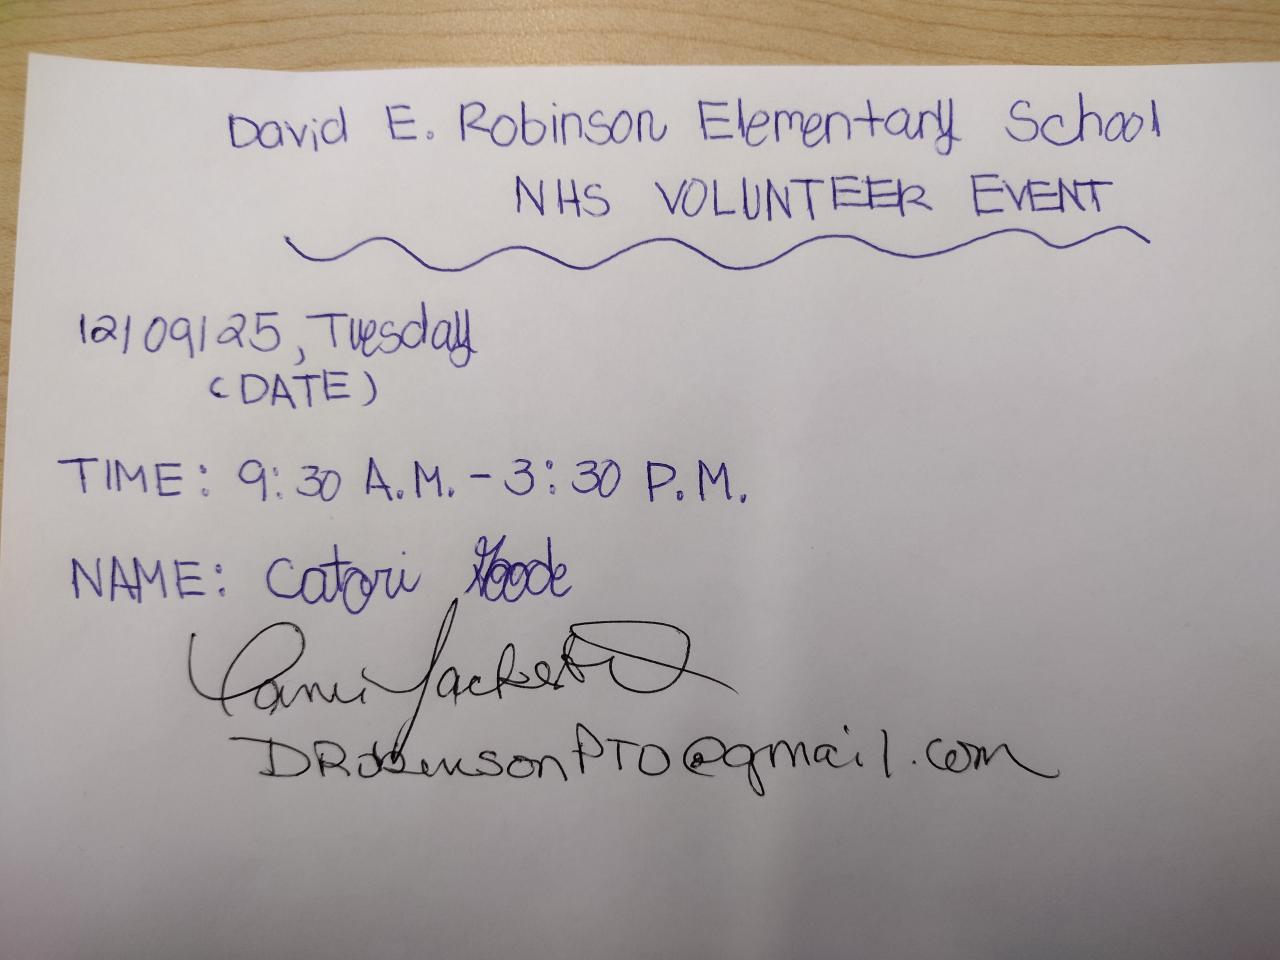 David E. Robinson Elementary School
NHS VOLUNTEER EVENT
12/09/25, Tuesday
(DATE)
TIME: 9:30 A.M. - 3:30 P.M.
NAME: Catori Goode
DRobinsonPTO@gmail.com